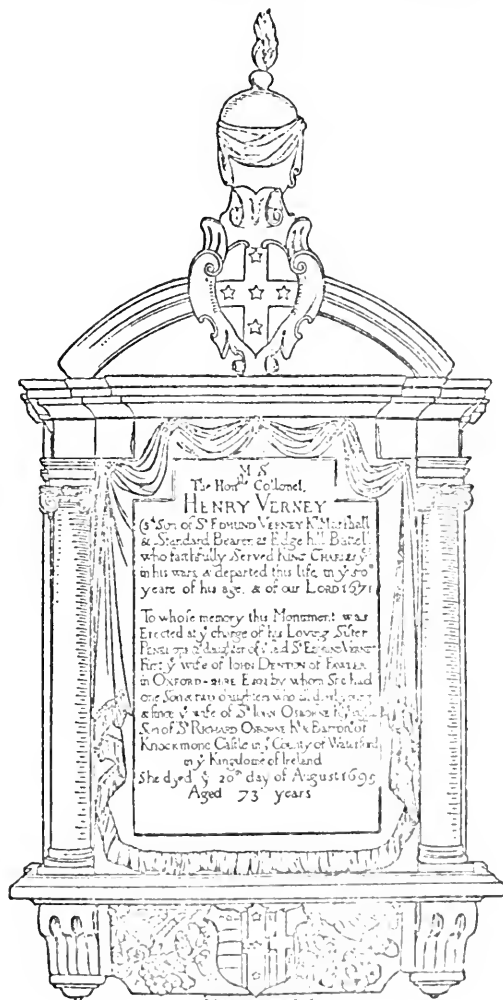 M S
The Hon:ble Collonel,
HENRY VERNEY
(3d Son of Sr EDMUND VERNEY Kt Marshall
& Standard Bearer at Edge hill Battell
who faithfully Served KING CHARLES ye
in his wars & departed this life in ye 50th
yeare of his age, & of our LORD 1671
To whose memory this Monument was
Erected at ye charge of his Loving Sister
daughter of ye sd Sr EDMUND VERNEY
First ye wife of IOHN DENTON of
in OXFORD-SHIRE by whom She had
one Son & two daughters who
& since ye wife of Sr IOHN OSBORNE
Son of Sr RICHARD OSBORNE Kt & of
Knockmone Castle in ye County of Waterford
in ye Kingdome of Ireland
She dyed ye 20th day of August 1695
Aged 73 years